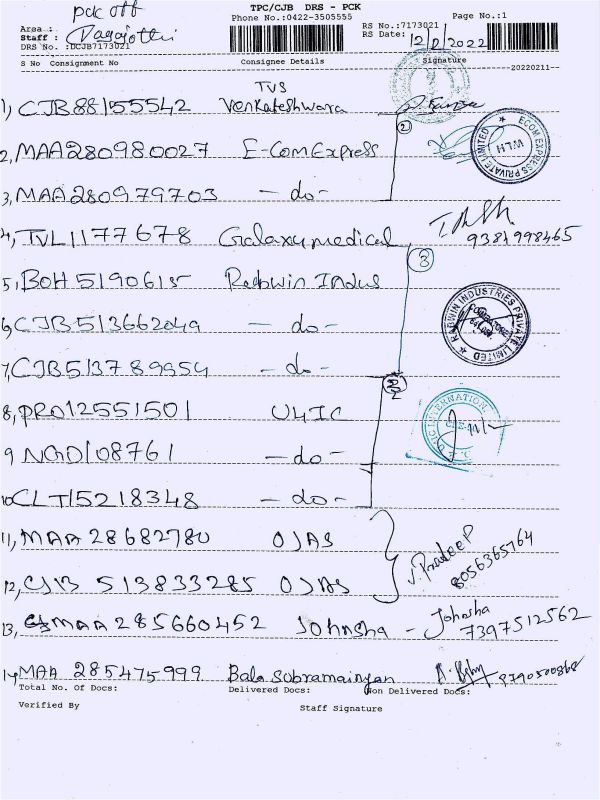 TPC/CJB DRS - PCK
pck off
Phone No.:0422-3505555
Page No.:1
Area :
RS No.:7173021
Staff :
RS Date: 12/2/2022
DRS No. :DCJB7173021
S No Consignment No Consignee Details Signature
20220211--
1, CJB88155542 TVS Venkateshwara
2, MAA280980027 E-Com Express
ECOM EXPRESS PRIVATE LIMITED
WLH
3, MAA280979703 - do -
4, TVL1177678 Galaxy medical
9384998465
5, BOH5190615 Radwin Indus
3
RADWIN INDUSTRIES PRIVATE LIMITED
COIMBATORE
6, CJB513662049 - do -
7, CJB513789954 - do -
8, PRO12551501 U4IC
U4IC INTERNATIONAL
9 NGD108761 - do -
10 CLT15218348 - do -
11, MAA 28682780 OJAS
Pradeep
8056365764
12, CJB 513833285 OJAS
13, MAA 285660452 Johnsha - Johnsha
7397512562
14, MAA 285475999 Bala Subramainyan
8790500868
Total No. Of Docs: Delivered Docs: Non Delivered Docs:
Verified By Staff Signature